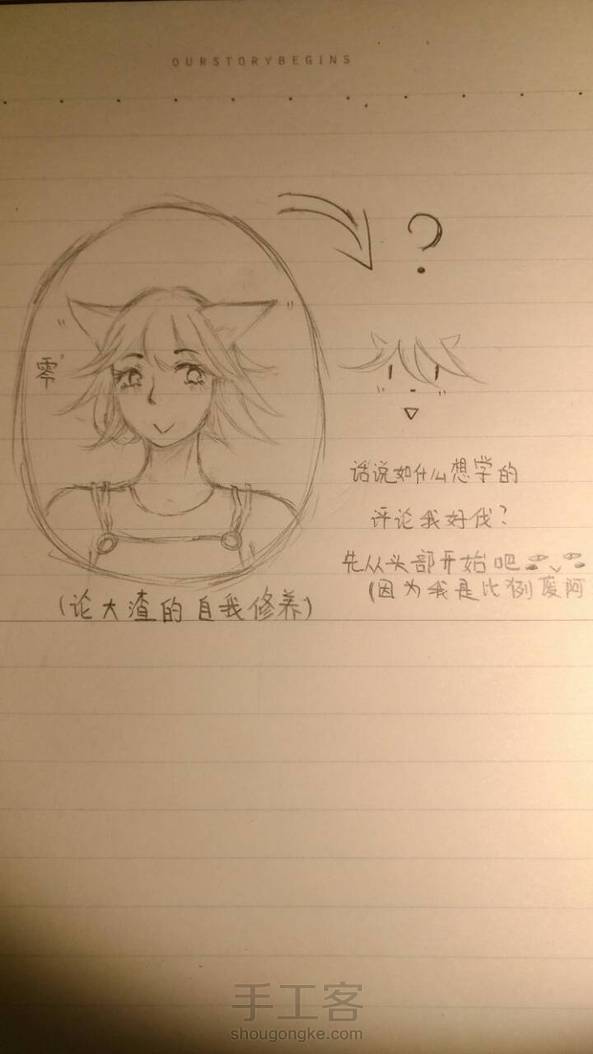 OURSTORYBEGINS
?
零
话说如什么想学的
评论我好伐?
先从头部开始吧
(因为我是比例废阿
(论大渣的自我修养)
手工客
shougongke.com